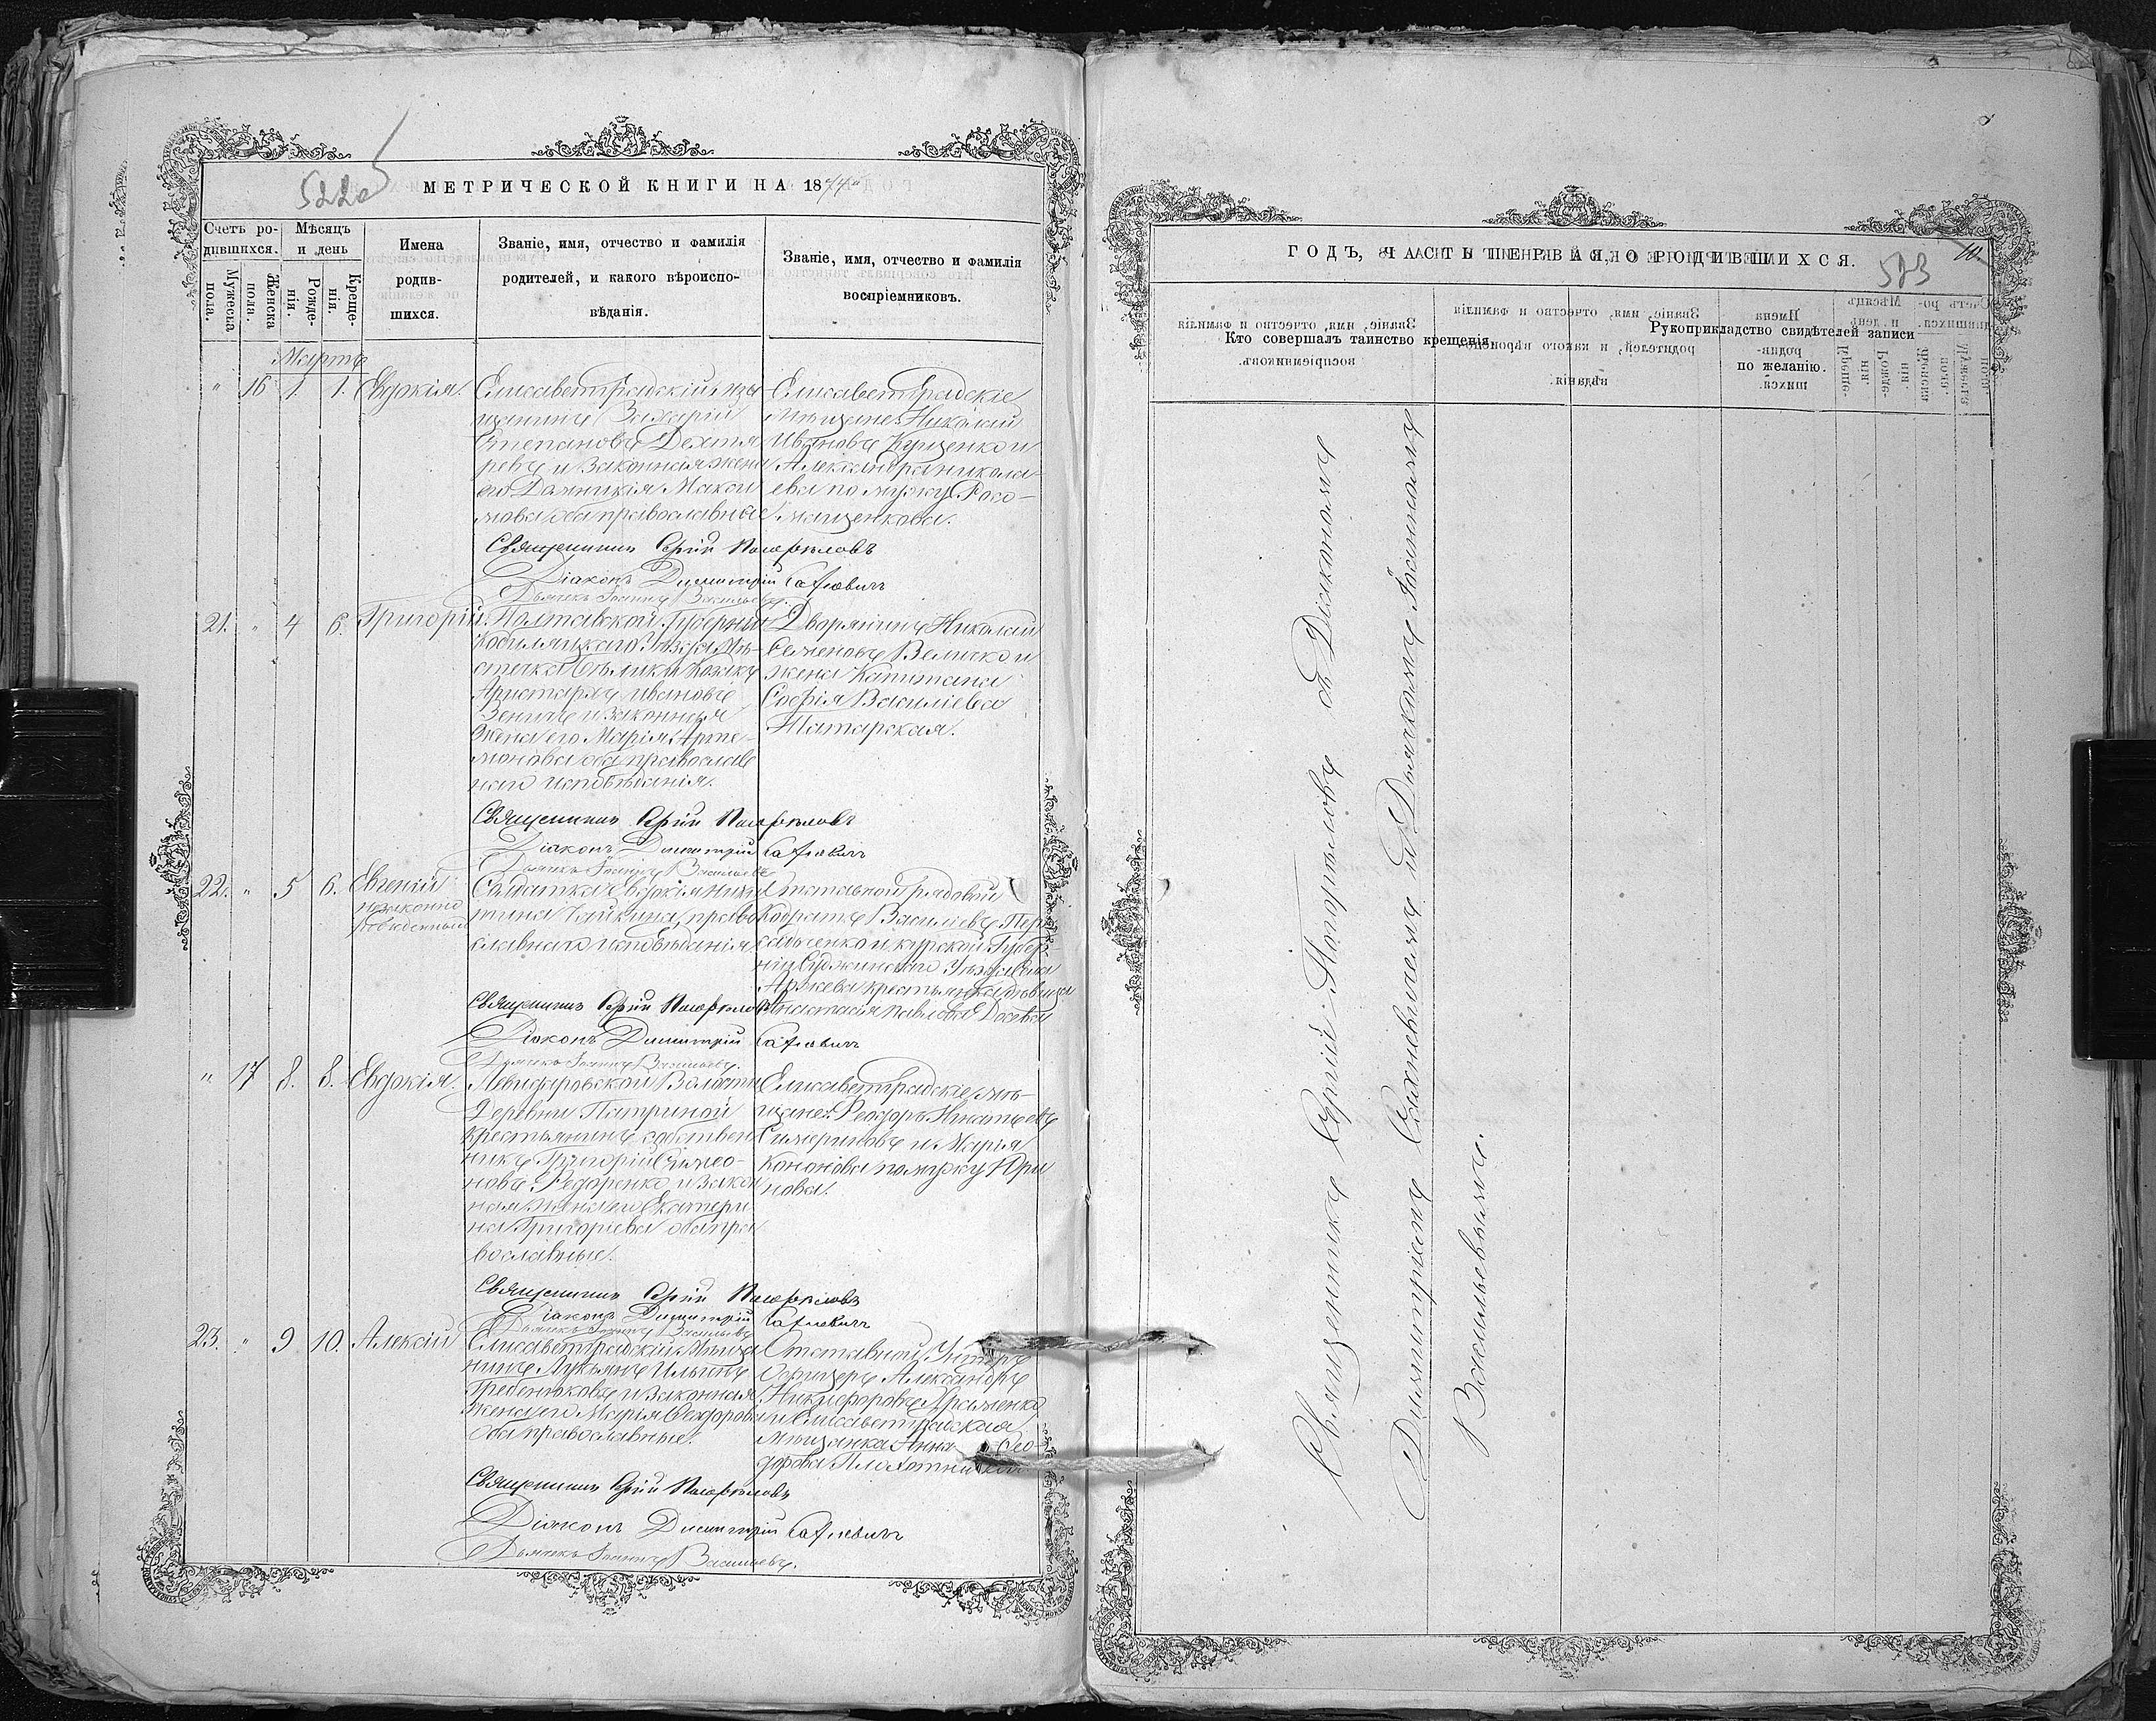 522
МЕТРИЧЕСКОЙ КНИГИ НА 1877
Счетъ ро-
дившихся.
Мужеска
пола.
Женска
пола.
Мѣсяцъ
и день
Рожде-
нія.
Креще-
нія.
Имена
родив-
шихся.
Званіе, имя, отчество и фамилія
родителей, и какого вѣроиспо-
вѣданія.
Званіе, имя, отчество и фамилія
воспріемниковъ.
Мартъ
" 16 1. 1. Евдокія.
Елисаветградскій мѣ
щанинъ Захарій
Степановъ Дехтя
ревъ и законная жена
его Домникія Макси
мова оба православные
Елисаветградскіе
мѣщане: Николай
Ивановъ Куценко и
Александра Никола-
ева по мужу
Священникъ Сергій Погорѣловъ
Діаконъ Димитрій Сахневичъ
Дьячекъ Іоаннъ Васильевъ.
21. " 4 6. Григорій.
Полтавской Губерніи
Кобиляцкаго Уѣзда Мѣ-
стечка Бѣликъ Козакъ
Аристархъ Ивановъ
и законная
жена его Марія Арте-
монова оба православ
наго исповѣданія.
Дворянинъ Николай
Семеновъ Величко и
жена Капитана
Софія Василіева
Татарская.
Священникъ Сергій Погорѣловъ
Діаконъ Димитрій Сахневичъ
Дьячекъ Іоаннъ Васильевъ
22. " 5 6. Евгеній
незаконно
рожденный
Солдатка Евдокія Ники
тина Чайкина, право
славнаго исповѣданія
рядовой
Кодратъ Василіевъ
и Курской Губер
ніи Суджинскаго Уѣзда Села
крестьянка дѣвица
Анастасія Павлова
Священникъ Сергій Погорѣловъ
Діаконъ Димитрій Сахневичъ
Дьячекъ Іоаннъ Васильевъ.
" 17 8. 8. Евдокія.
Волости
Деревни
крестьянинъ собствен
никъ Григорій Симео-
новъ Федоренко и закон
ная жена его Екатери
на Григоріева оба пра
вославные.
Елисаветградскіе мѣ-
щане: Феодоръ Игнатьевъ
и Марія
Кононова по мужу Юри
нова.
Священникъ Сергій Погорѣловъ
Діаконъ Димитрій Сахневичъ
Дьячекъ Іоаннъ Васильевъ
23. " 9 10. Алексій
Елисаветградскій Мѣща
нинъ Лукьянъ Ильинъ
Гребенюковъ и законная
жена его Марія Феодорова
оба православные.
Отставной Унтеръ
Офицеръ Александръ
Никифоровъ Храменко
и Елисаветградская
мѣщанка Анна Фео-
дорова
Священникъ Сергій Погорѣловъ
Діаконъ Димитрій Сахневичъ
Дьячекъ Іоаннъ Васильевъ.
10.
523
ГОДЪ, ЧАСТЬ ПЕРВАЯ, О РОДИВШИХСЯ.
Кто совершалъ таинство крещенія.
Рукоприкладство свидѣтелей записи
по желанію.
Священникъ Сергій Погорѣловъ съ Діакономъ
Димитріемъ Сахневичемъ и Дьячкомъ Іоанномъ
Васильевымъ.